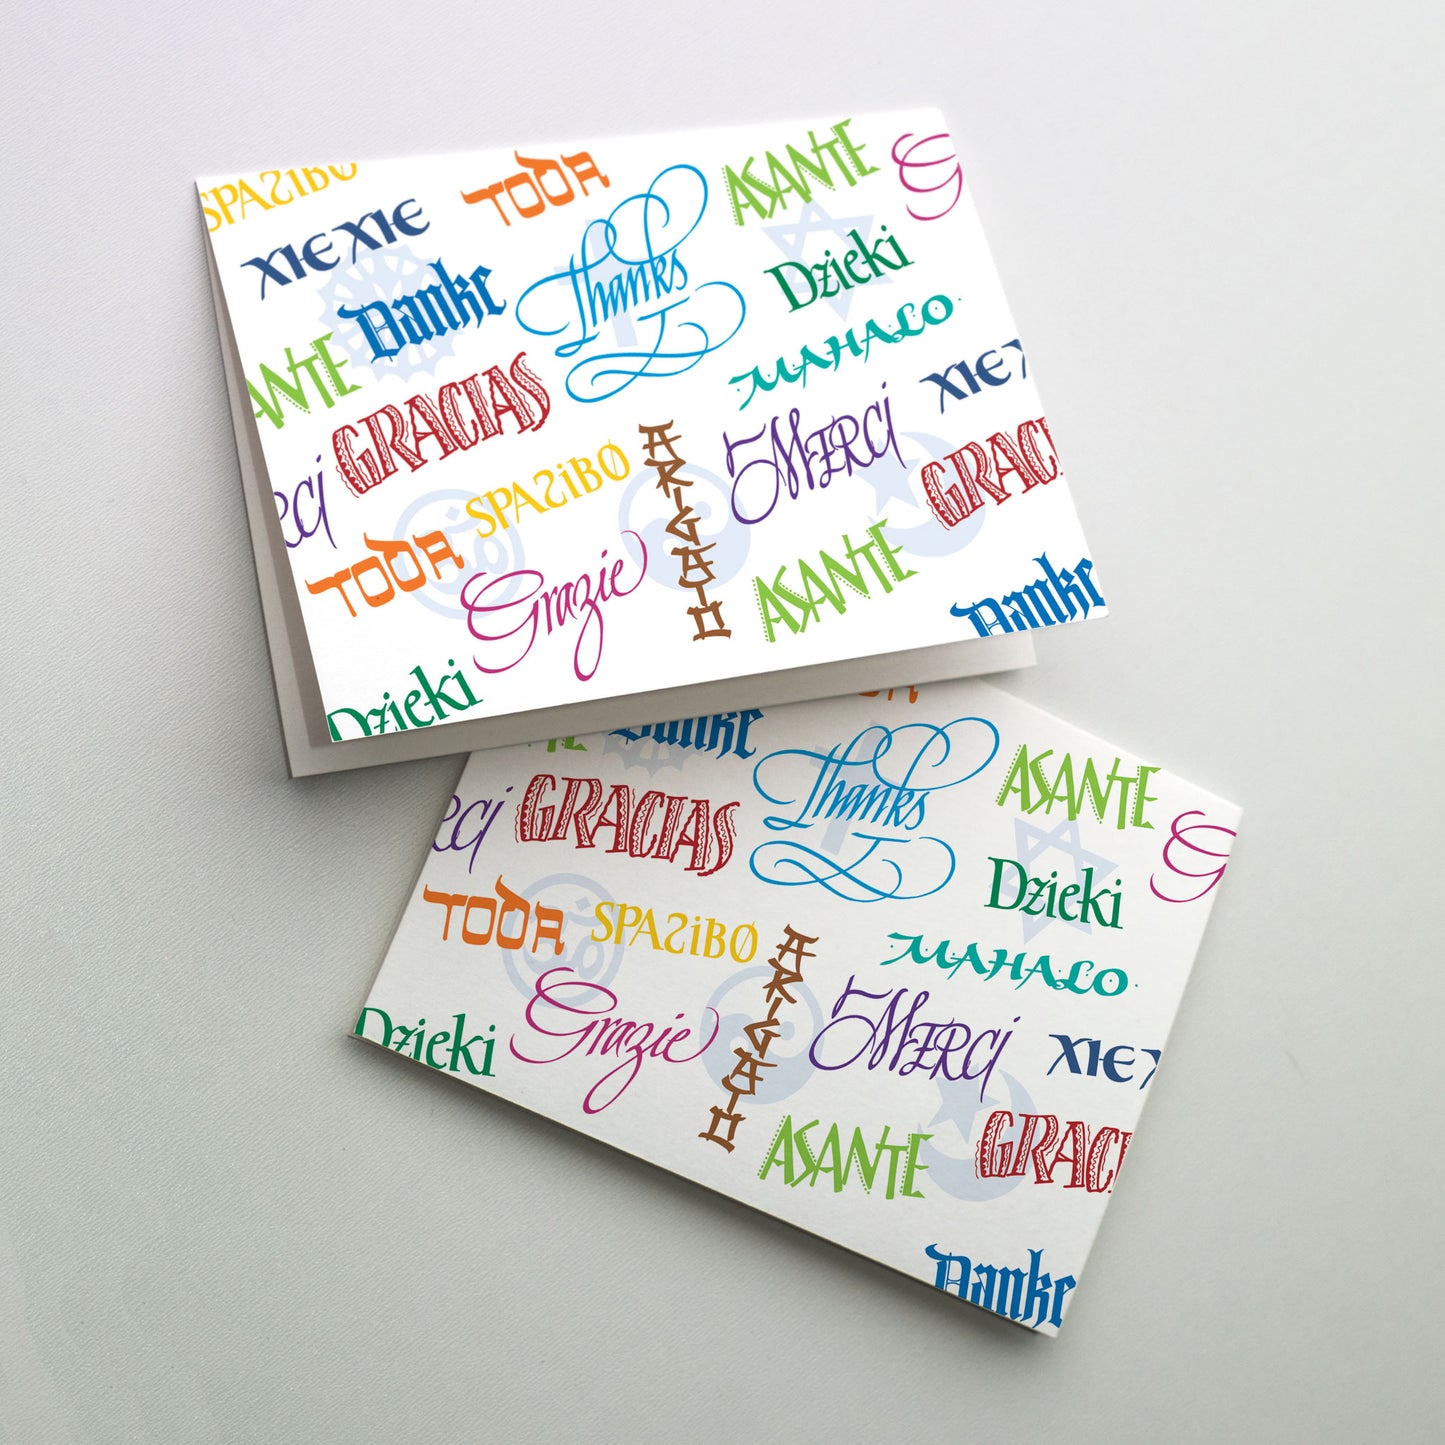 SPASIBO
TODA
ASANTE
G
XIE XIE
Thanks
Dzieki
Danke
MAHALO
ANTE
XIE X
GRACIAS
MERCI
SPASIBO
ARIGATO
GRACI
RCI
TODA
ASANTE
Grazie
Danke
Dzieki
TODA
TE
Danke
Thanks
ASANTE
RCI
GRACIAS
G
Dzieki
TODA
SPASIBO
ARIGATO
MAHALO
Dzieki
Grazie
MERCI
XIE X
ASANTE
GRACI
Danke